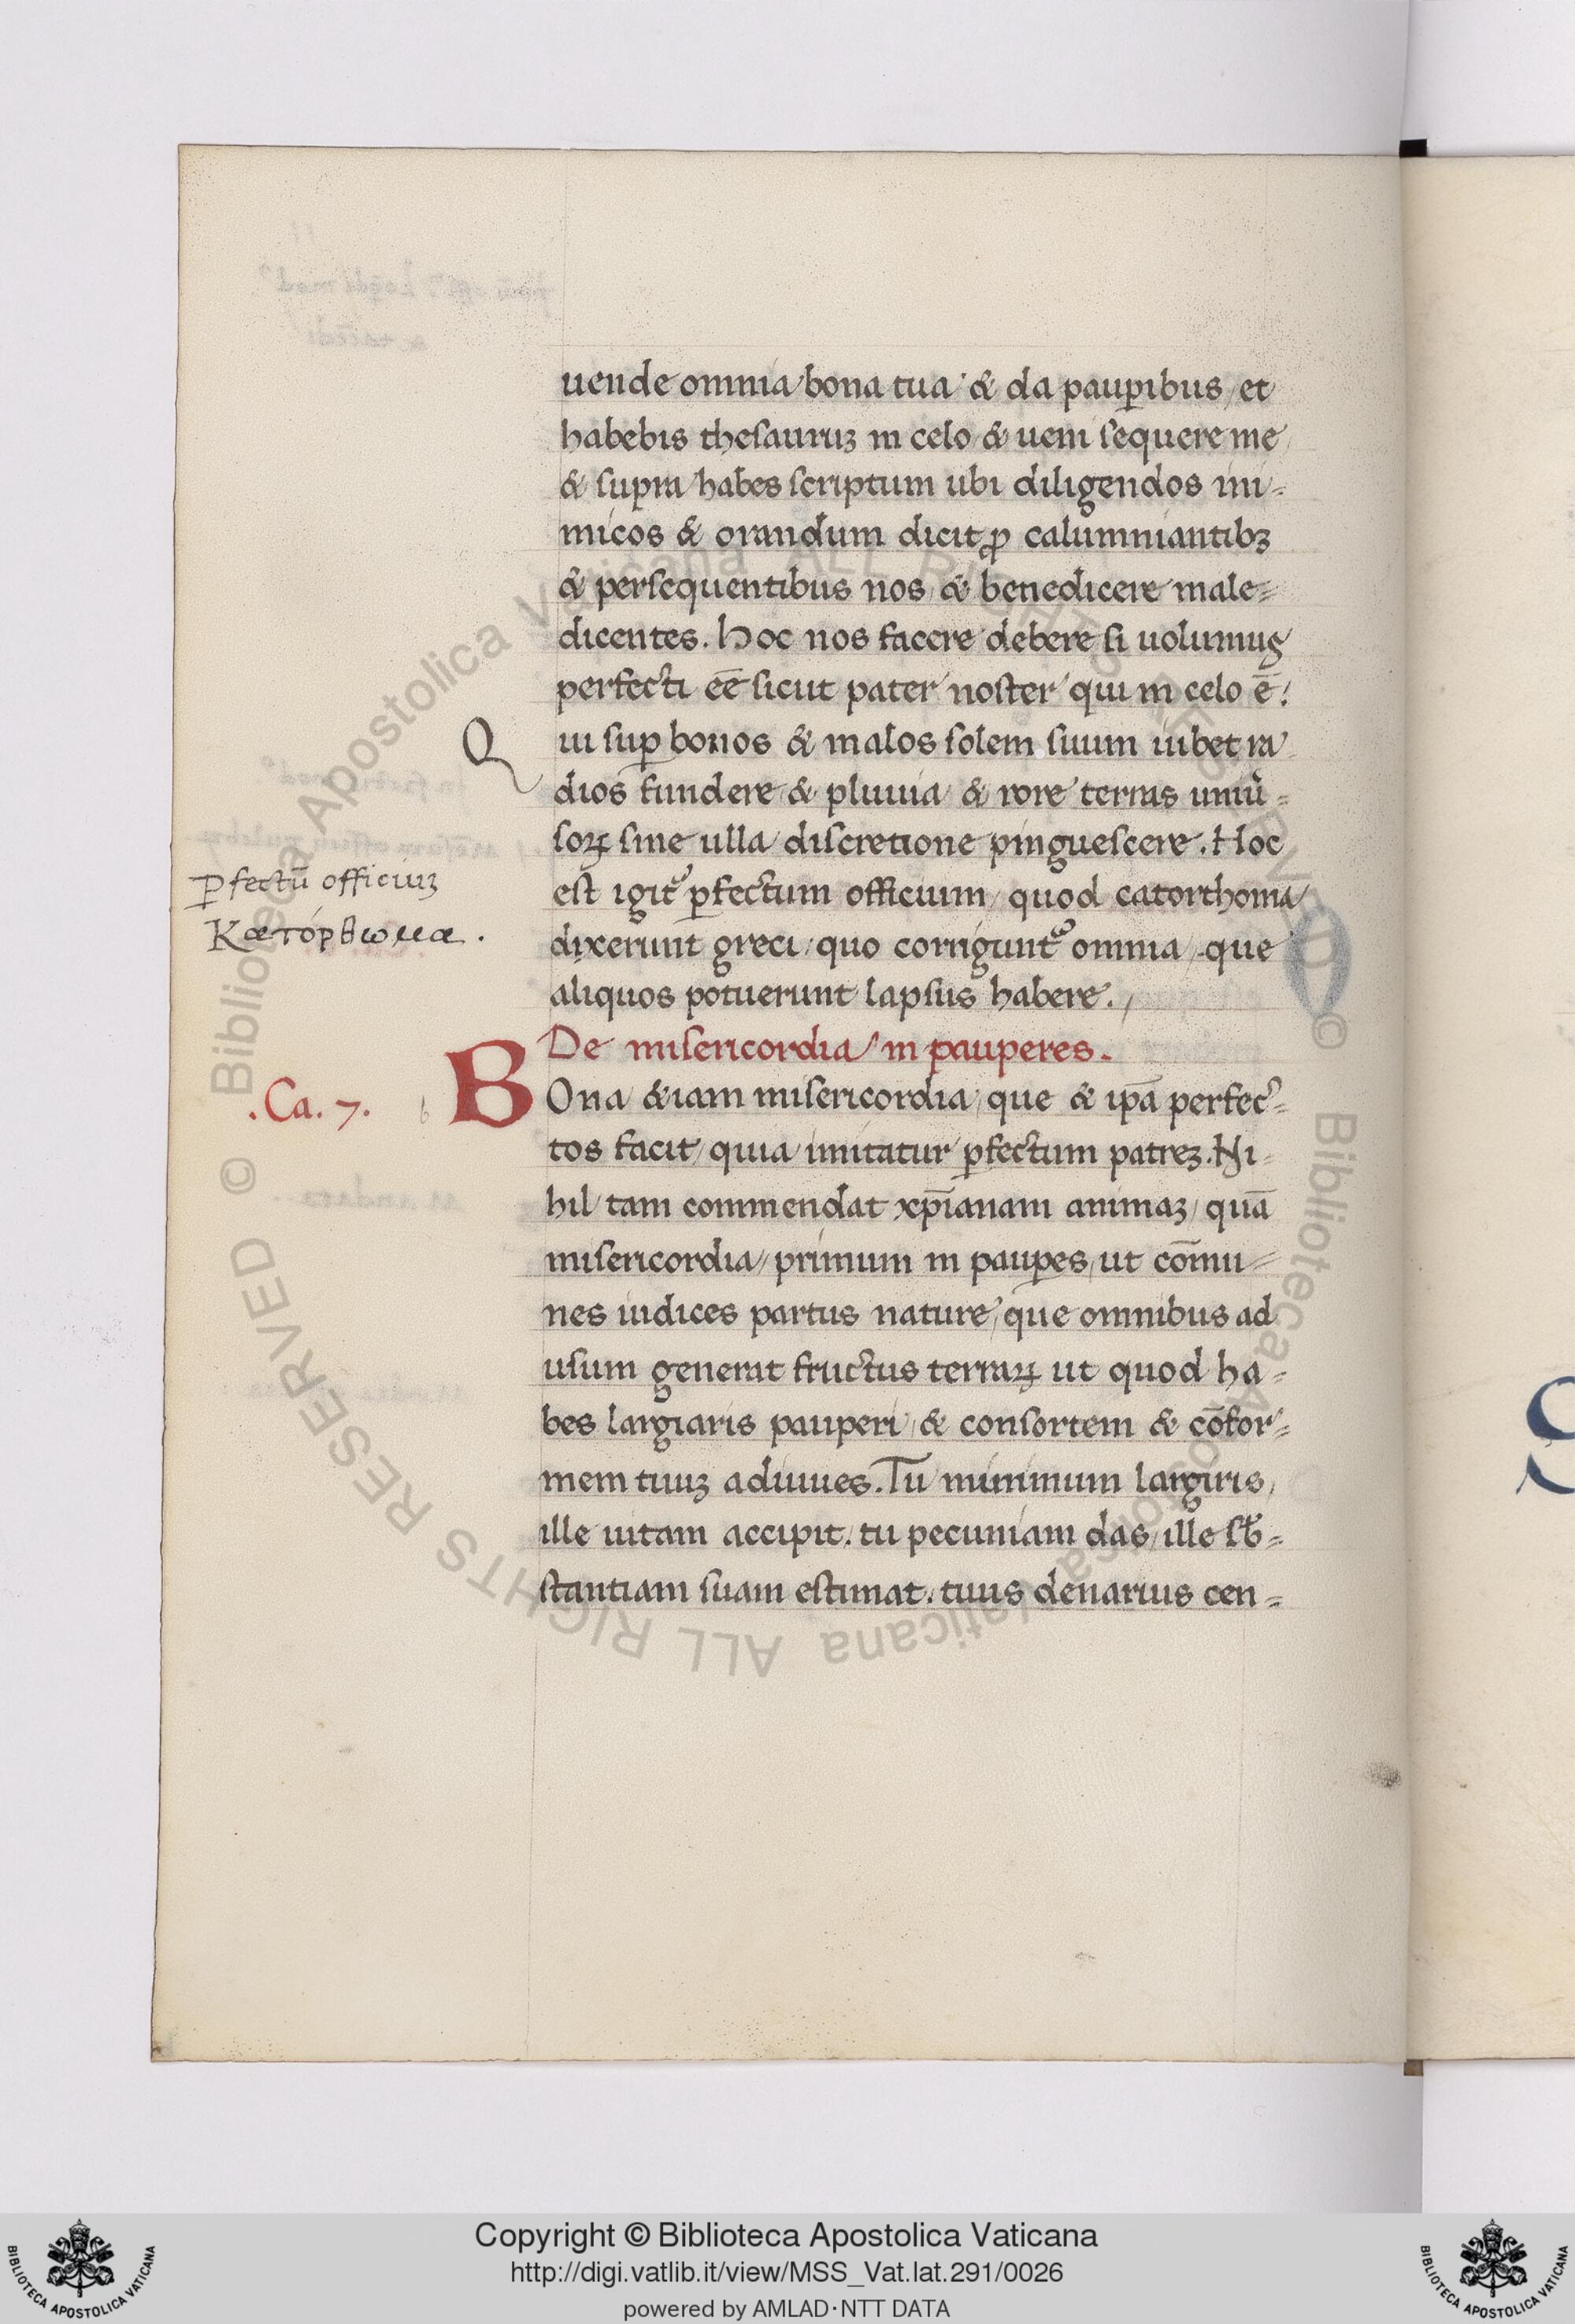 uende omnia bona tua & da paupibus et
habebis thesauruꝫ in celo & ueni sequere me
& supra habes scriptum ubi diligendos ini-
micos & orandum dicit ꝓ calumniantibꝫ
& persequentibus nos & benedicere male-
dicentes. Hoc nos facere debere si uolumus
perfecti eē sicut pater noster qui in celo ē.
Qui suꝑ bonos & malos solem suum iubet ra
dios fundere & pluuia & rore terras uniu-
soꝝ sine ulla discretione pinguescere. Hoc
est igit᷑ ꝑfectum officium / quod catorthoma
dixerunt greci / quo corrigunt᷑ omnia / que
aliquos potuerunt lapsus habere.
ꝑfectū officiuꝫ
Κατόρθωμα.
De misericordia in pauperes.
.Ca. 7.
b
BOna &iam misericordia / que & ip̄a perfec-
tos facit / quia imitatur ꝑfectum patreꝫ. Ni-
hil tam commendat xp̄ianam animaꝫ / quā
misericordia / primum in pauꝑes, ut cōmu-
nes iudices partus nature / que omnibus ad
usum generat fructus terraꝝ ut quod ha-
bes largiaris pauperi / & consortem & cōfor-
mem tuuꝫ adiuues. Tu minimum largiris /
ille uitam accipit. tu pecuniam das / ille sƀ-
stantiam suam estimat. tuus denarius cen-
Copyright © Biblioteca Apostolica Vaticana
http://digi.vatlib.it/view/MSS_Vat.lat.291/0026
powered by AMLAD·NTT DATA
BIBLIOTECA APOSTOLICA VATICANA
BIBLIOTECA APOSTOLICA VATICANA
© Biblioteca Apostolica Vaticana ALL RIGHTS RESERVED © Biblioteca Apostolica Vaticana ALL RIGHTS RESERVED